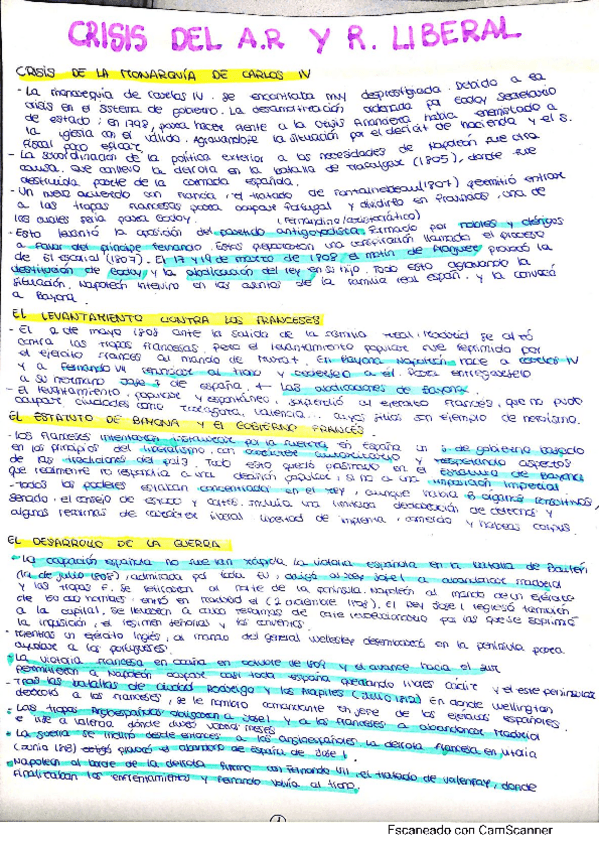 CRISIS DEL A.R Y R. LIBERAL
CRISIS DE LA MONARQUÍA DE CARLOS IV
- La monarquía de Carlos IV. se encontraba muy desprestigiada. Debido a la
crisis en el sistema de gobierno. La desamortización ordenada por Godoy secretario
de estado; en 1798, para hacer frente a la crisis financiera había enemistado a
la iglesia con el valido. Agravándose la situación por el déficit de hacienda y el S.
Fiscal poco eficaz.
- La subordinación de la política exterior a las necesidades de Napoleón fue otra
causa. Que conllevó la derrota en la batalla de Trafalgar (1805), donde fue
destruida parte de la armada española.
- Un nuevo acuerdo con Francia, el tratado de Fontainebleau (1807) permitió entrar
a las tropas francesas para ocupar Portugal y dividirlo en provincias, una de
las cuales sería para Godoy. (Fernandino/aristocrático)
- Esto levantó la oposición del partido antigodoyista, formado por nobles y clérigos
a favor del príncipe Fernando. Estos prepararon una conspiración llamada el proceso
de El Escorial (1807). El 17 y 19 de marzo de 1808 el motín de Aranjuez provocó la
destitución de Godoy y la abdicación del rey en su hijo. Todo esto agravando la
situación. Napoleón intervino en los asuntos de la familia real españ. y la convocó
a Bayona.
EL LEVANTAMIENTO CONTRA LOS FRANCESES
- El 2 de mayo 1808 ante la salida de la familia real, Madrid se alzó
contra las tropas francesas. Pero el levantamiento popular fue reprimido por
el ejército francés al mando de Murat. En Bayona Napoleón hace a Carlos IV
y a Fernando VII renunciar al trono y a él. Para entregárselo
a su hermano José I de España. ← Las abdicaciones de Bayona.
- El levantamiento, popular y espontáneo, sorprendió al ejército francés, que no pudo
ocupar ciudades como Zaragoza, Valencia... cuyos sitios son ejemplo de heroísmo.
EL ESTATUTO DE BAYONA Y EL GOBIERNO FRANCÉS.
- Los franceses intentaron por la fuerza en España un s. de gobierno basado
en los principios del liberalismo, con carácter autoritario y respetando aspectos
de las tradiciones del país. Todo esto quedó plasmado en el Estatuto de Bayona
que realmente no respondía a una decisión popular, si no a una imposición imperial
- Todos los poderes estaban concentrados en el rey, aunque había 3 órganos consultivos
senado, el consejo de estado y cortes. Incluía una limitada declaración de derechos y
algunas reformas de carácter liberal libertad de imprenta, comercio y habeas corpus.
EL DESARROLLO DE LA GUERRA
- La ocupación española no fue tan rápida. La victoria española en la batalla de Bailén
de julio 1808), admirada por toda Eu, obligó al rey José I a abandonar Madrid
y las tropas F. se retiraron al norte de la península. Napoleón al mando de un ejército
de hombres entró en Madrid el (2 diciembre 1808). El Rey José I regresó también
a la capital, se llevaron a cabo reformas de corte revolucionario por las que se suprimió
la inquisición, el régimen señorial y los conventos.
- Mientras un ejército inglés, al mando del general Wellesley desembarcó en la península para
ayudar a los portugueses.
- La victoria francesa en Ocaña en octubre de 1809 y el avance hacia el sur
permitieron a Napoleón ocupar casi toda España quedando libres Cádiz y el este peninsular
- Tras las batallas de Ciudad Rodrigo y los Arapiles (Julio 1812) En donde Wellington
derrotó a los franceses, se le nombró comandante en jefe de los ejércitos españoles.
- Las tropas Angloespañolas obligaron a José I y a los franceses a abandonar Madrid
e irse a Valencia donde meses
- La guerra se inclinó desde entonces a los angloespañoles. La derrota francesa en Vitoria
(Junio 1813) provocó el abandono de España de José I.
- Napoleón al borde de la derrota firmó con Fernando VII, el tratado de Valençay, donde
finalizaban los enfrentamientos y Fernando volvía al trono.
1
Escaneado con CamScanner